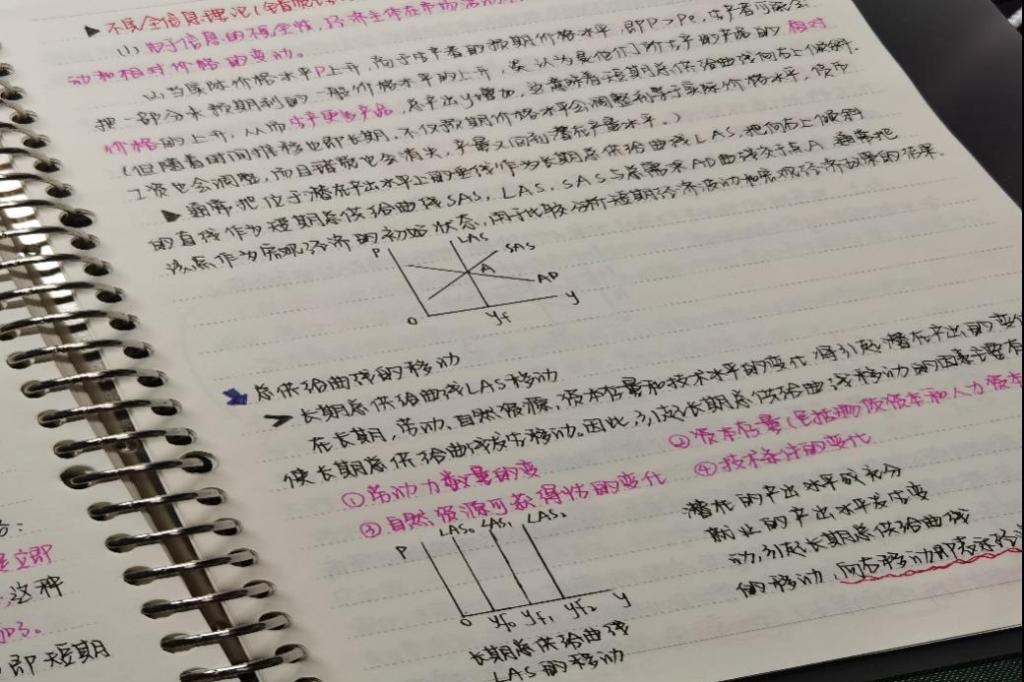 ▶ 不完全信息理论(
(1) 由于信息的不完全性,
动和相对价格的变动。
(2) 当实际价格水平P上升,高于生产者的预期价格水平,即P>Pe,生产者可能会
把一部分未预期到的一般价格水平的上升,误认为是他们所生产的产品的相对
价格的上升,从而生产更多产品,总产出y增加,这意味着短期总供给曲线向右上倾斜.
(但随着时间推移也即长期,不仅预期价格水平会调整到等于实际价格水平,货币
工资也会调整,而且错觉也会消失,产量又回到潜在产量水平。)
▶ 通常把位于潜在产出水平上的垂线作为长期总供给曲线LAS,把向右上倾斜
的直线作为短期总供给曲线SAS, LAS、SAS与总需求AD曲线交于点A, 通常把
该点作为宏观经济的初始状态,用于比较分析短期经济波动和宏观经济政策的效果.
P LAS SAS
A
AD
0 yf y
总供给曲线的移动
➢ 长期总供给曲线LAS移动
在长期,劳动、自然资源,资本存量和技术水平的变化 将引起潜在产出的变
使长期总供给曲线发生移动。因此,引起长期总供给曲线移动的因素主要有
①劳动力数量的变 ②资本存量(包括物质资本和人力资本
③自然资源可获得性的变化 ④技术条件的变化
P LAS₀ LAS₁ LAS₂
0 yf₀ yf₁ yf₂ y
长期总供给曲线
LAS的移动
潜在的产出水平或充分
就业的产出水平发生变
动,引起长期总供给曲线
的移动,向右移动即表示经济
立即
这种
即短期